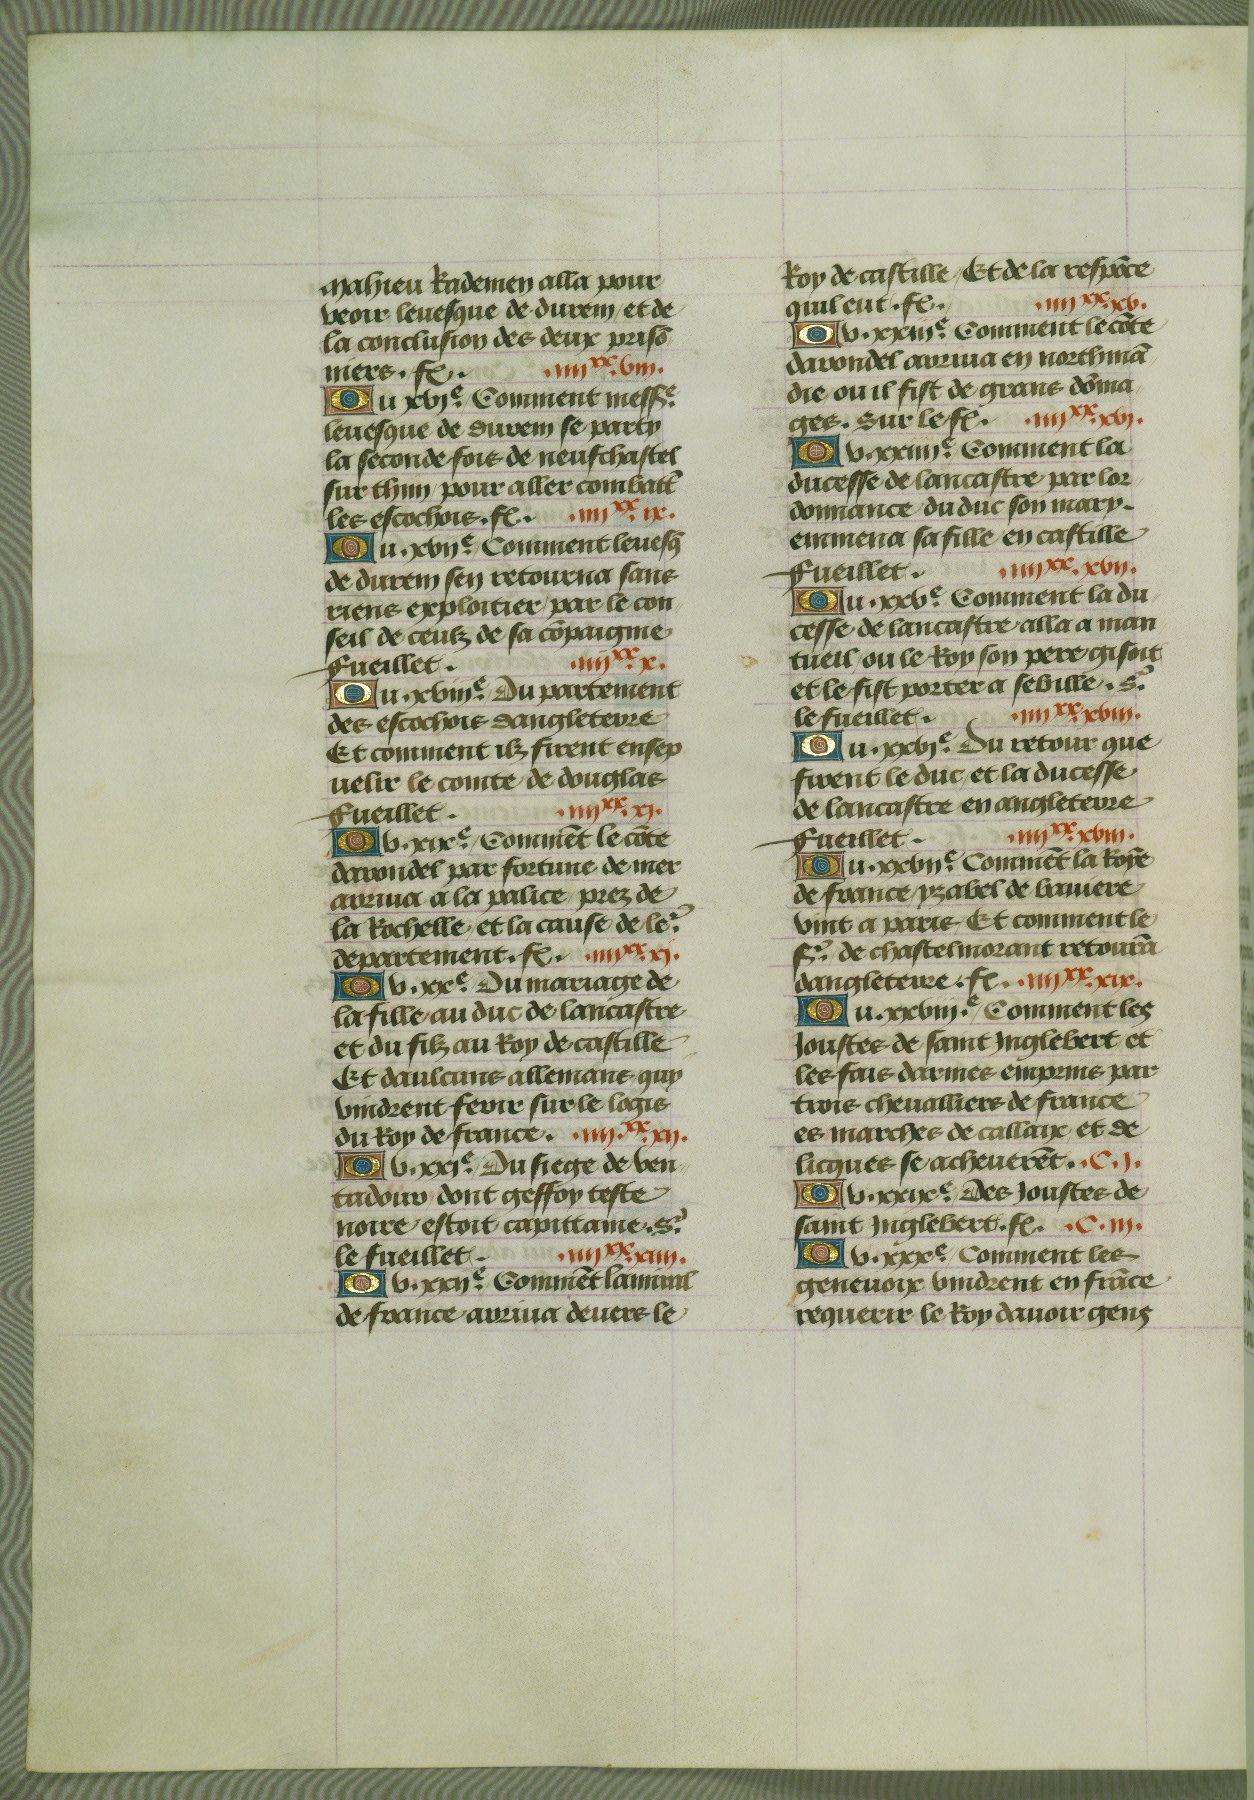 mahieu Rademen alla pour
veoir leuesque de durem et de
la conclusion des deux prisō
niers . fᵒ. .iiiiˣˣ.viii.
Ou xviᵉ. Comment messᵉ.
leuesque de durem se party
la seconde fois de neufchastel
sur thin pour aller combatt̄
les escochois . fᵒ. .iiiiˣˣ.ix.
Ou .xviiᵉ. Comment leuesq̄
de durem sen retourna sans
riens exploitier par le con
seil de ceulz de sa cōpaignie
fueillet . .iiiiˣˣ.x.
Ou .xviiiᵉ. Du partement
des escochois dangleterre
Et comment ilz firent ensep
uelir le comte de douglas
fueillet . .iiiiˣˣ.xi.
Ov .xixᵉ. Commēt le cōte
darondel par fortune de mer
arriua a la palice prez de
la Rochelle et la cause de leᵣ
departement . fᵒ. .iiiiˣˣ.xi.
Ov .xxᵉ. Du mariage de
la fille au duc de lancastre
et du filz au Roy de castille
Et daulcuns allemans quy
vindrent ferir sur le logis
du Roy de france . .iiiiˣˣ.xii.
Ov .xxiᵉ. Du siege de ven
tadour dont geffoy teste
noire estoit capittaine . Sᵣ
le fueillet . .iiiiˣˣ.xiiii.
Ov .xxiiᵉ. Commēt lamiral
de france arriua deuers le
Roy de castille Et de la respōce
quil eut . fᵒ. .iiiiˣˣ.xv.
Ov .xxiiiᵉ. Comment le cōte
darondel arriua en northmā
die ou il fist de grans dōma
ges . Sur le fᵒ. .iiiiˣˣ.xvi.
Ov .xxiiiiᵉ. Comment la
ducesse de lancastre par lor
donnance du duc son mary .
emmena sa fille en castille
fueillet . .iiiiˣˣ.xvii.
Ou .xxvᵉ. Comment la du
cesse de lancastre alla a man
tueil ou le Roy son pere gisoit
et le fist porter a sebille . Sᵣ
le fueillet . .iiiiˣˣ.xviii.
Ou .xxviᵉ. Du retour que
firent le duc et la ducesse
de lancastre en angleterre
fueillet . .iiiiˣˣ.xviii.
Ou .xxviiᵉ. Commēt la Royē
de france yzabel de baniere
vint a paris Et comment le
Sᵣ de chastelmorant retourā
dangleterre . fᵒ. .iiiiˣˣ.xix.
Ou .xxviii.ᵉ Comment les
Joustes de saint Inglebert et
les fais darmes emprins par
trois cheualliers de france
es marches de callaix et de
licques se acheuerēt . .C.j.
Ov .xxixᵉ. Des Joustes de
saint Inglebert . fᵒ. .C.iii.
Ov .xxxᵉ. Comment les
geneuoix vindrent en frāce
requerir le Roy dauoir gens